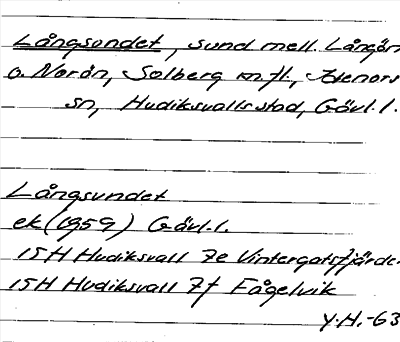 Långsundet, sund mell. Långön
o. Norön, Solberg m.fl., Idenors
sn, Hudiksvalls stad, Gävl.l.
Långsundet
ek (1959) Gävl.l.
15H Hudiksvall 7e Vintergatsfjärden
15H Hudiksvall 7f Fågelvik
Y.H.-63